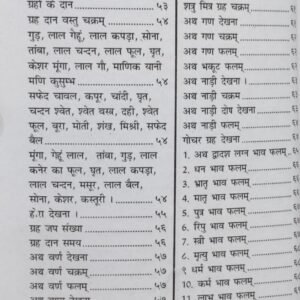 ग्रहों के दान ........ ५३
ग्रह दान वस्तु चक्रम् ........ ५४
गुड़, लाल गेहूं, लाल कपड़ा, सोना,
तांबा, लाल चन्दन, लाल फूल, घृत,
केशर मूंगा, लाल गौ, माणिक यानी
मणि कुसुम्भ ........ ५४
सफेद चावल, कपूर, चांदी, घृत,
चन्दन श्वेत, श्वेत वस्त्र, दही, श्वेत
फूल, बूरा, मोती, शंख, मिश्री, सफेद
बैल ........ ५४
मूंगा, गेहूं लाल, तांबा, गुड़, लाल
कनेर का फूल, घृत, लाल कपड़ा,
लाल चन्दन, मसूर, लाल बैल,
सोना, केशर, कस्तूरी । ........ ५४
हं.रा देखना । ........ ५५
ग्रह जप संख्या ........ ५६
ग्रह दान समय ........ ५६
अथ वर्ण देखना ........ ५७
अथ वर्ण चक्रम् ........ ५७
अथ वर्ण फलम् ........ ५७
शत्रु मित्र ग्रह चक्रम्
अथ गण देखना
अथ गण चक्रम्
अथ गण फलम्
अथ भकूट फलम्
अथ नाड़ी देखना ।
अथ नाड़ी चक्रम्
अथ नाड़ी दोष देखना
अथ नाड़ी फलम्
गोचर ग्रह देखना
1. अथ द्वादश लग्न भाव फलम्
2. धन भाव फलम्
3. भ्रातृ भाव फलम्
4. मातृ भाव फलम्
5. पुत्र भाव फलम्
6. रिपु भाव फलम्
7. स्त्री भाव फलम्
8. मृत्यु भाव फलम्
9. धर्म भाव फलम्
10. कर्म भाव फलम्
11. लाभ भाव फलम्